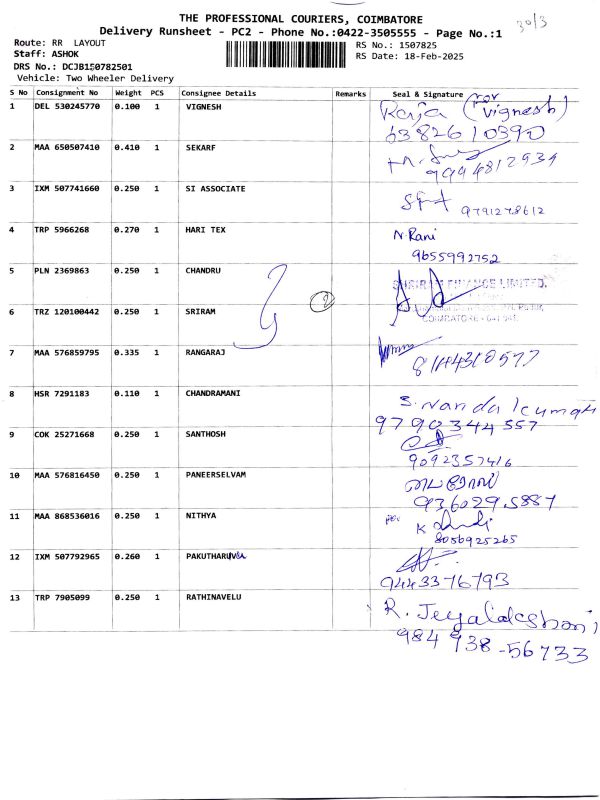 THE PROFESSIONAL COURIERS, COIMBATORE
30/3
Delivery Runsheet - PC2 - Phone No.:0422-3505555 - Page No.:1
Route: RR LAYOUT
RS No.: 1507825
Staff: ASHOK
RS Date: 18-Feb-2025
DRS No.: DCJB150782501
Vehicle: Two Wheeler Delivery
S No Consignment No Weight PCS Consignee Details Remarks Seal & Signature
1 DEL 530245770 0.100 1 VIGNESH Raja (for Vignesh)
6382610390
2 MAA 650507410 0.410 1 SEKARF
9994812934
3 IXM 507741660 0.250 1 SI ASSOCIATE
9791278612
4 TRP 5966268 0.270 1 HARI TEX N. Rani
9655992752
5 PLN 2369863 0.250 1 CHANDRU
SHRIRAM FINANCE LIMITED.
6 TRZ 120100442 0.250 1 SRIRAM
2
COIMBATORE
7 MAA 576859795 0.335 1 RANGARAJ
8 HSR 7291183 0.110 1 CHANDRAMANI S. Nanda kumar
9790344557
9 COK 25271668 0.250 1 SANTHOSH
9092357416
10 MAA 576816450 0.250 1 PANEERSELVAM
9360295887
11 MAA 868536016 0.250 1 NITHYA K
8056925265
12 IXM 507792965 0.260 1 PAKUTHARIVU
9443376793
13 TRP 7905099 0.250 1 RATHINAVELU R.
984 938-56733